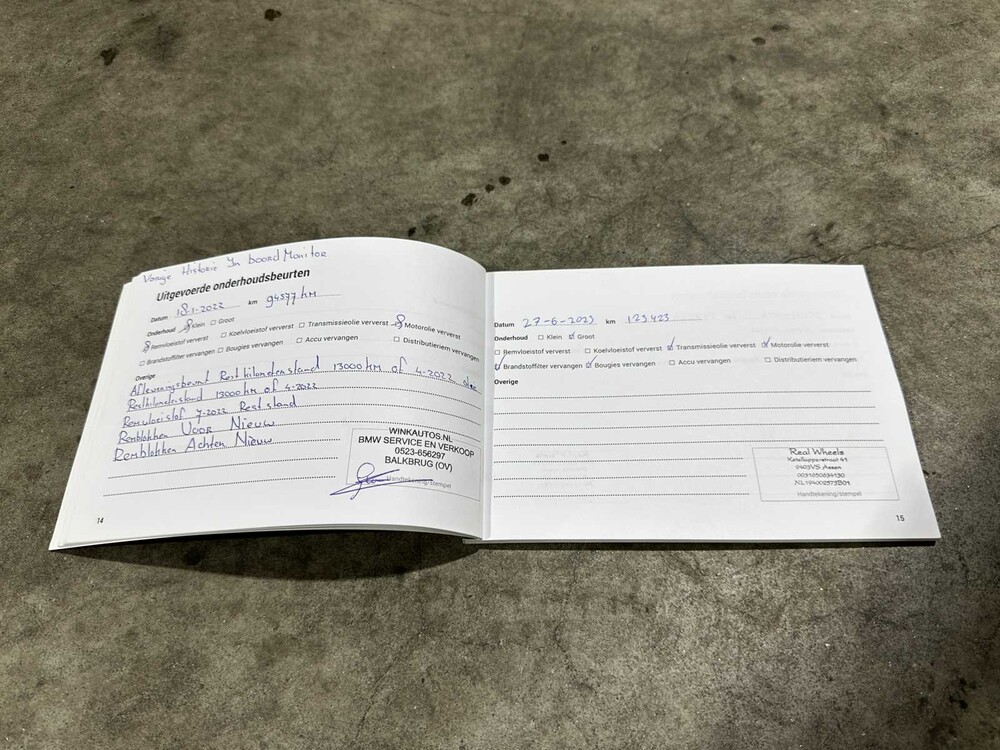 Vorige Historie In boord Monitor
Uitgevoerde onderhoudsbeurten
Datum 18-1-2022 km 94577 km
Onderhoud Klein Groot
Remvloeistof ververst Koelvloeistof ververst Transmissieolie ververst Motorolie ververst
Brandstoffilter vervangen Bougies vervangen Accu vervangen Distributieriem vervangen
Overige
Afleveringsbeurt Restkilometerstand 13000 km of 4-2022
Restkilometerstand 13000 km of 4-2022
Remvloeistof 7-2022 Reststand
Remblokken Voor Nieuw
Remblokken Achter Nieuw
WINKAUTOS.NL
BMW SERVICE EN VERKOOP
0523-656297
BALKBRUG (OV)
Handtekening/stempel
14
Datum 27-6-2023 km 123423
Onderhoud Klein Groot
Remvloeistof ververst Koelvloeistof ververst Transmissieolie ververst Motorolie ververst
Brandstoffilter vervangen Bougies vervangen Accu vervangen Distributieriem vervangen
Overige
Real Wheels
41
9403VS Assen
0031650634130
NL194002573B01
Handtekening/stempel
15